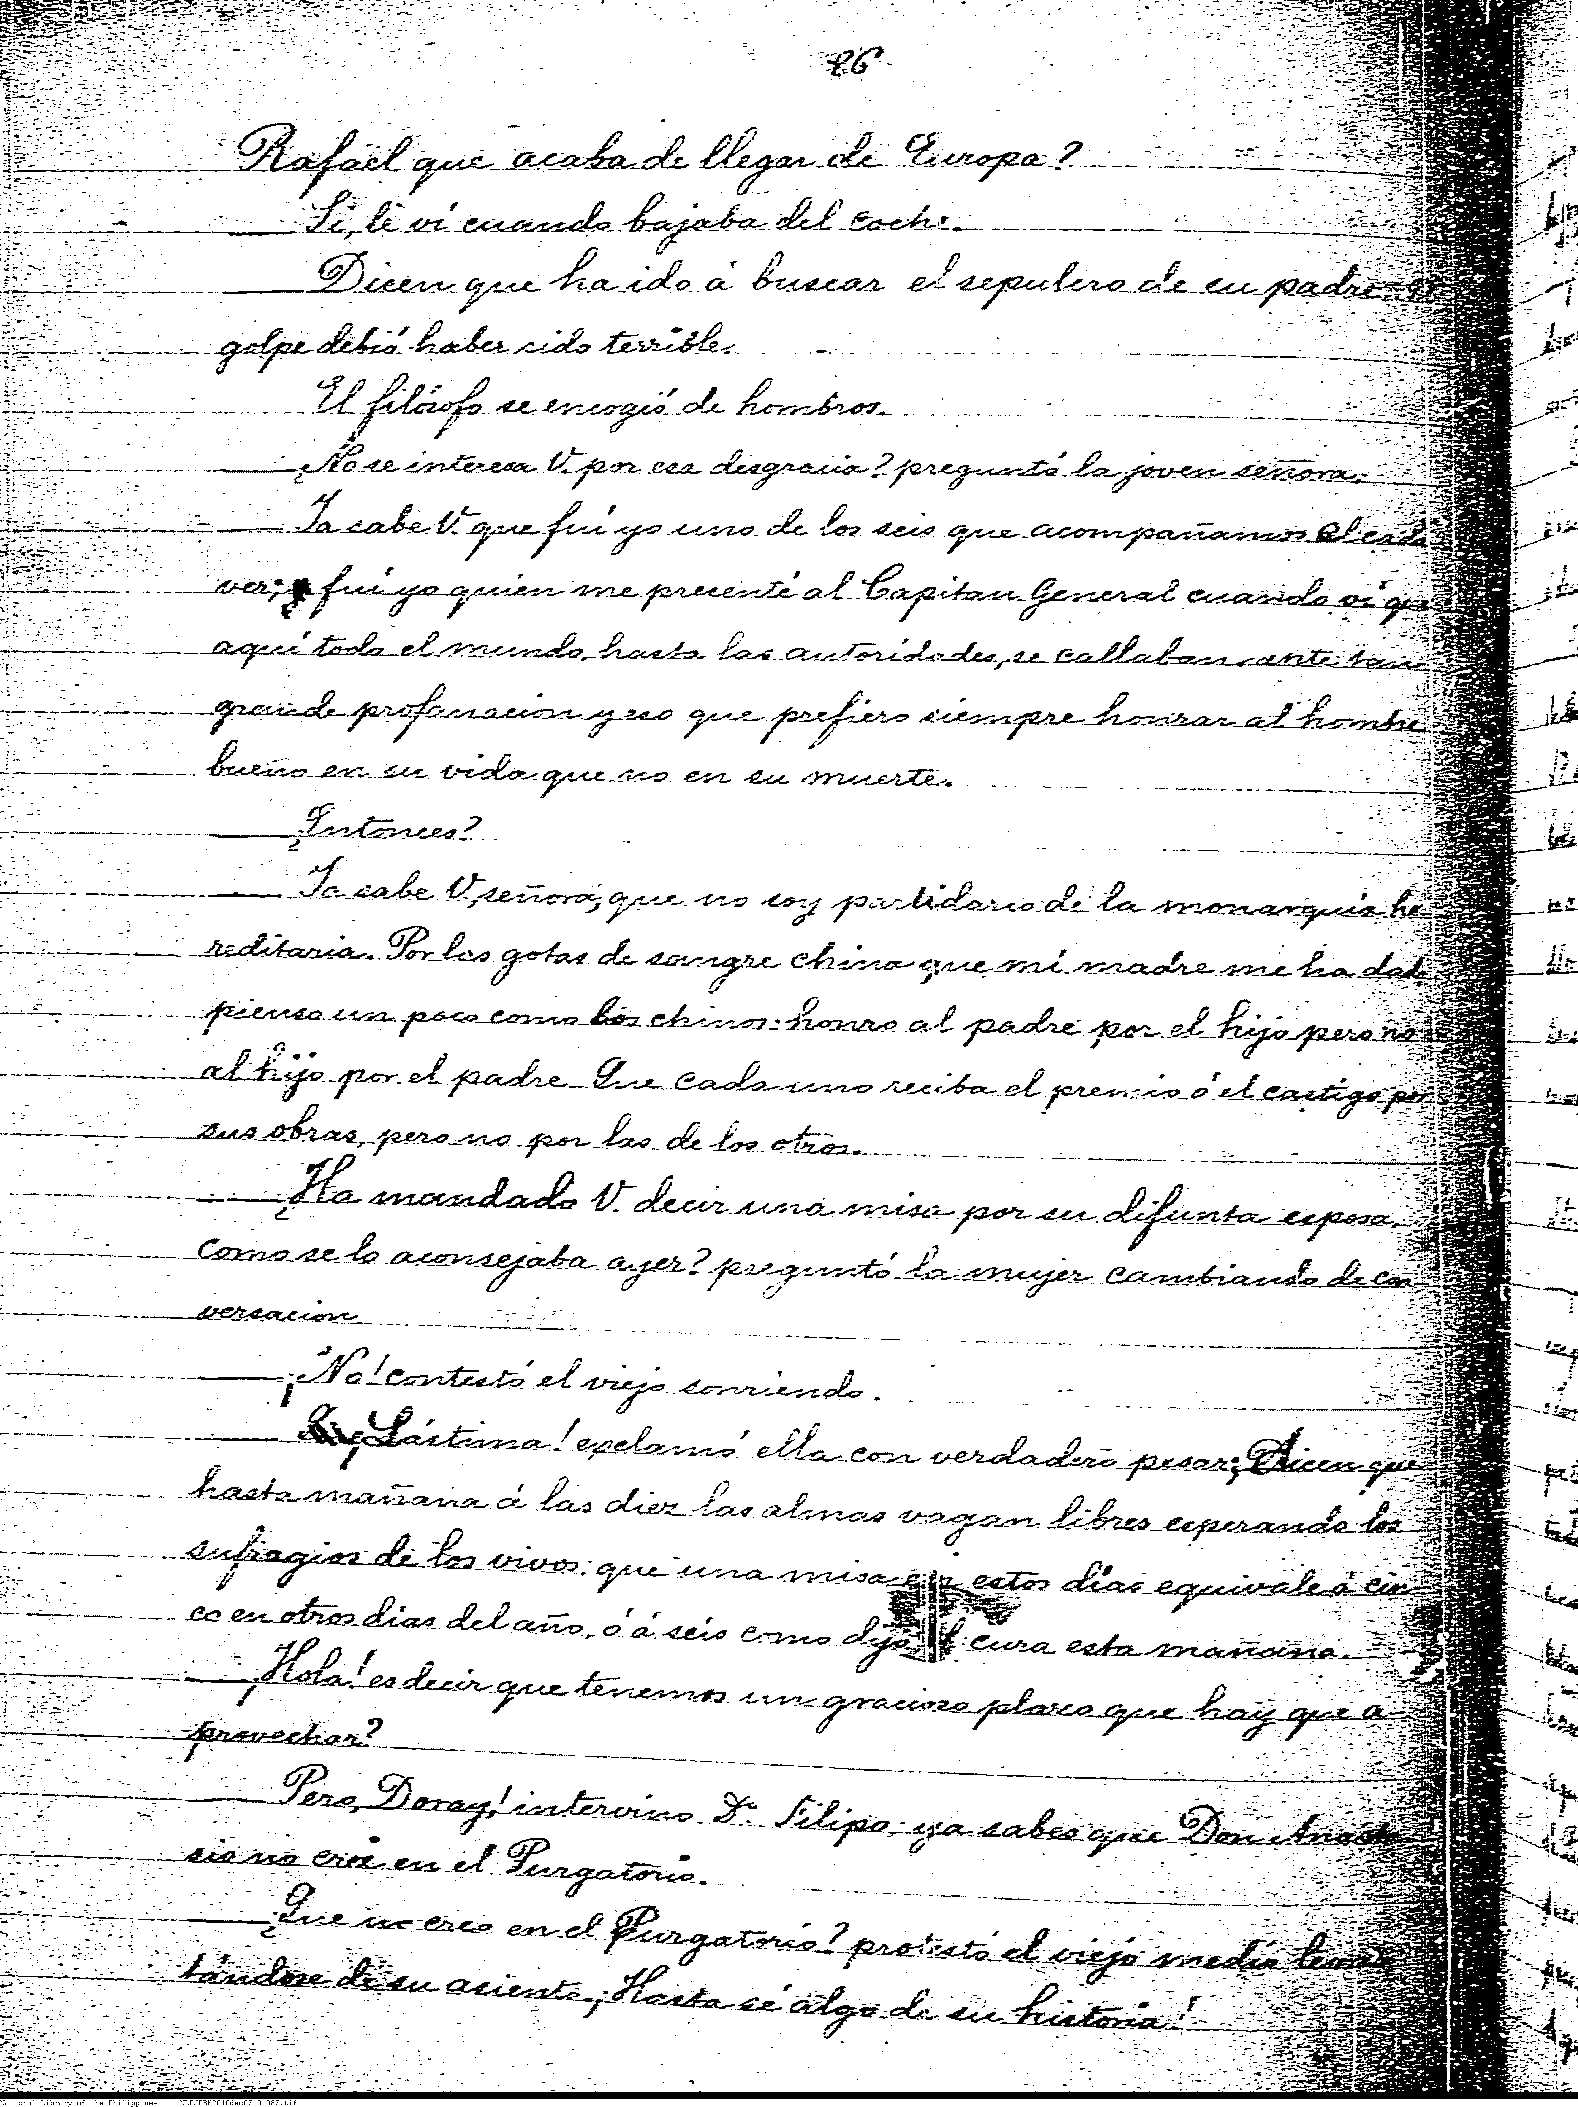 86
Rafael que acaba de llegar de Europa?
— Si, le ví cuando bajaba del coche.
— Dicen que ha ido á buscar el sepulcro de su padre. El
golpe debió haber sido terrible.
El filósofo se encogió de hombros.
— ¿No se interesa V. por esa desgracia? preguntó la joven señora.
— Ya sabe V. que fuí yo uno de los seis que acompañamos al cadá
ver; fuí yo quien me presenté al Capitan General cuando ví que
aquí todo el mundo, hasta las autoridades, se callaban ante tan
grande profanacion y eso que prefiero siempre honrar al hombre
bueno en su vida que no en su muerte.
— ¿Entonces?
— Ya sabe V, señora, que no soy partidario de la monarquía he
reditaria. Por las gotas de sangre china que mi madre me ha dado
pienso un poco como los chinos: honro al padre por el hijo pero no
al hijo por el padre. Que cada uno reciba el premio ó el castigo por
sus obras, pero no por las de los otros.
— ¿Ha mandado V. decir una misa por su difunta esposa,
como se lo aconsejaba ayer? preguntó la mujer cambiando de con
versacion
— ¡No! contestó el viejo sonriendo.
— ¡Lástima! exclamó ella con verdadero pesar; Dicen que
hasta mañana á las diez las almas vagan libres esperando los
sufragios de los vivos: que una misa en estos días equivale á cin
co en otros dias del año, ó á seis como dijo el cura esta mañana.
— ¡Hola! es decir que tenemos un gracioso plazo que hay que a
provechar?
— Pero, Doray! intervino Dn. Filipo; ya sabes que Don Anasta
sio no cree en el Purgatorio.
— ¿Que no creo en el Purgatorio? protestó el viejo medio levan
tándose de su asiento. ¡Hasta sé algo de su historia!